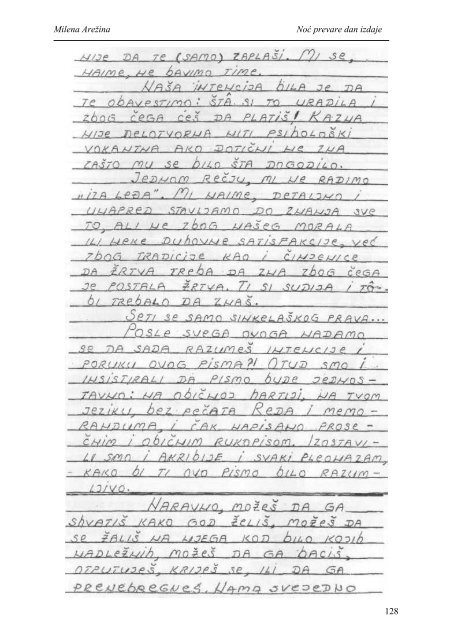 Milena Arežina Noć prevare dan izdaje
NIJE DA TE (SAMO) ZAPLAŠI. MI SE,
NAIME, NE BAVIMO TIME.
NAŠA INTENCIJA BILA JE DA
TE OBAVESTIMO: ŠTA SI TO URADILA I
ZBOG ČEGA ĆEŠ DA PLATIŠ! KAZNA
NIJE DELOTVORNA NITI PSIHOLOŠKI
VOKANTNA AKO DOTIČNI NE ZNA
ZAŠTO MU SE BILO ŠTA DOGODILO.
JEDNOM REČJU, MI NE RADIMO
„IZA LEĐA". MI NAIME, DETALJNO I
UNAPRED STAVLJAMO DO ZNANJA SVE
TO, ALI NE ZBOG NAŠEG MORALA
ILI NEKE DUHOVNE SATISFAKCIJE, VEĆ
ZBOG TRADICIJE KAO I ČINJENICE
DA ŽRTVA TREBA DA ZNA ZBOG ČEGA
JE POSTALA ŽRTVA. TI SI SUDIJA I TÔ
BI TREBALO DA ZNAŠ.
SETI SE SAMO SINKELAŠKOG PRAVA...
POSLE SVEGA OVOGA NADAMO
SE DA SADA RAZUMEŠ INTENCIJE I
PORUKU OVOG PISMA?! OTUD SMO I
INSISTIRALI DA PISMO BUDE JEDNOS-
TAVNO: NA OBIČNOJ HARTIJI, NA TVOM
JEZIKU, BEZ PEČATA REDA I MEMO-
RANDUMA, I ČAK NAPISANO PROSE-
ČNIM I OBIČNIM RUKOPISOM. IZOSTAVI-
LI SMO I AKRIBIJE I SVAKI PLEONAZAM,
KAKO BI TI OVO PISMO BILO RAZUM-
LJIVO.
NARAVNO, MOŽEŠ DA GA
SHVATIŠ KAKO GOD ŽELIŠ, MOŽEŠ DA
SE ŽALIŠ NA NJEGA KOD BILO KOJIH
NADLEŽNIH, MOŽEŠ DA GA BACIŠ,
OTPUTUJEŠ, KRIJEŠ SE, ILI DA GA
PRENEBREGNEŠ. NAMA SVEJEDNO
128